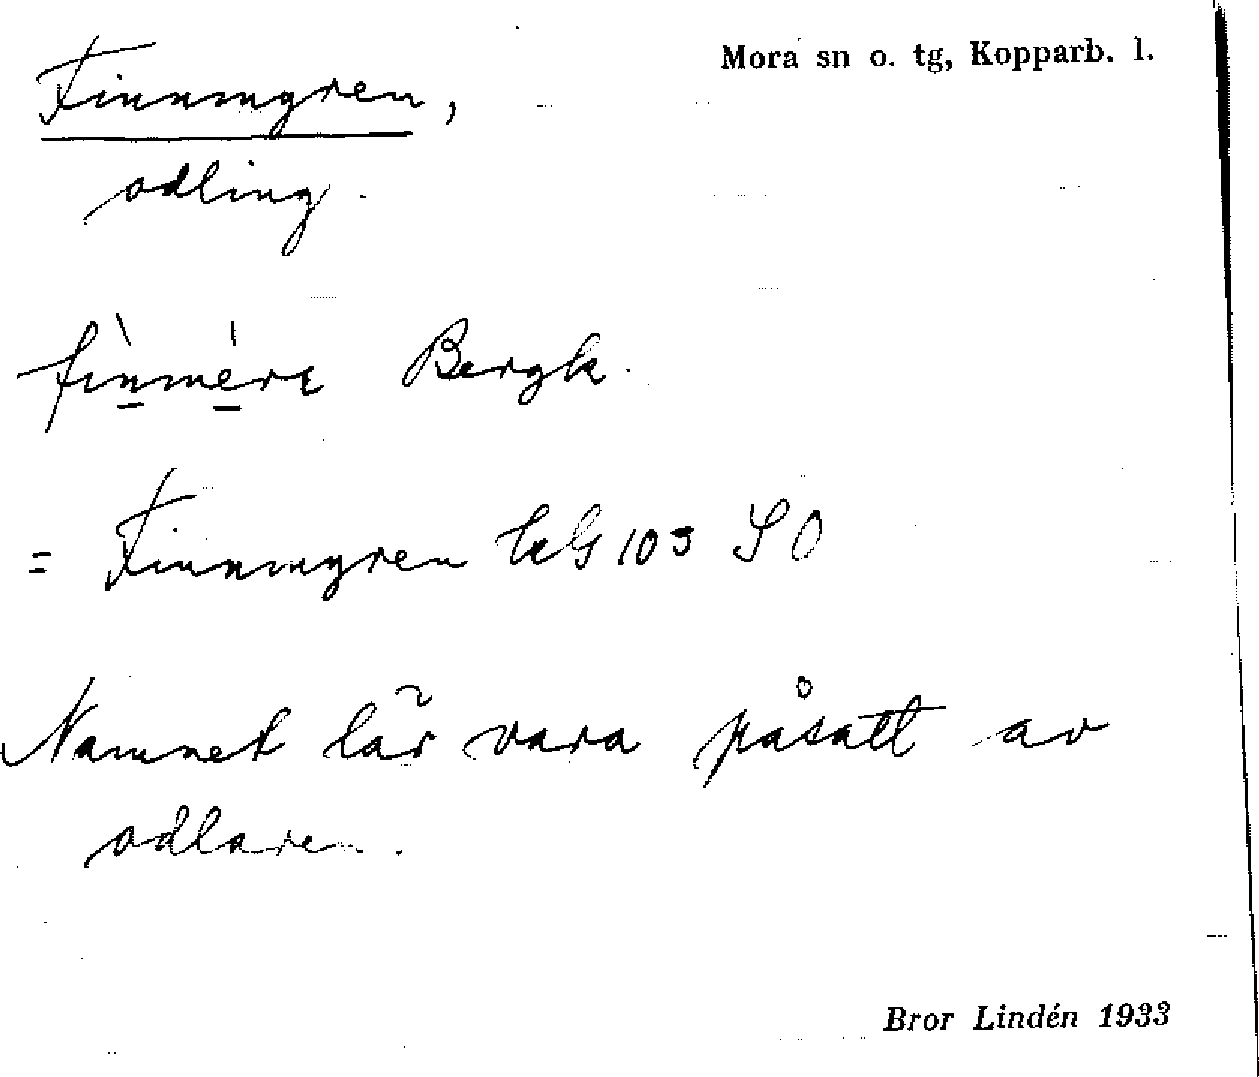 Mora sn o. tg, Kopparb. l.
Finnmyren,
odling.
fìnmérɩ Bergk.
= Finnmyren LG 103 SO
Namnet lär vara påsatt av
odlaren.
Bror Lindén 1933